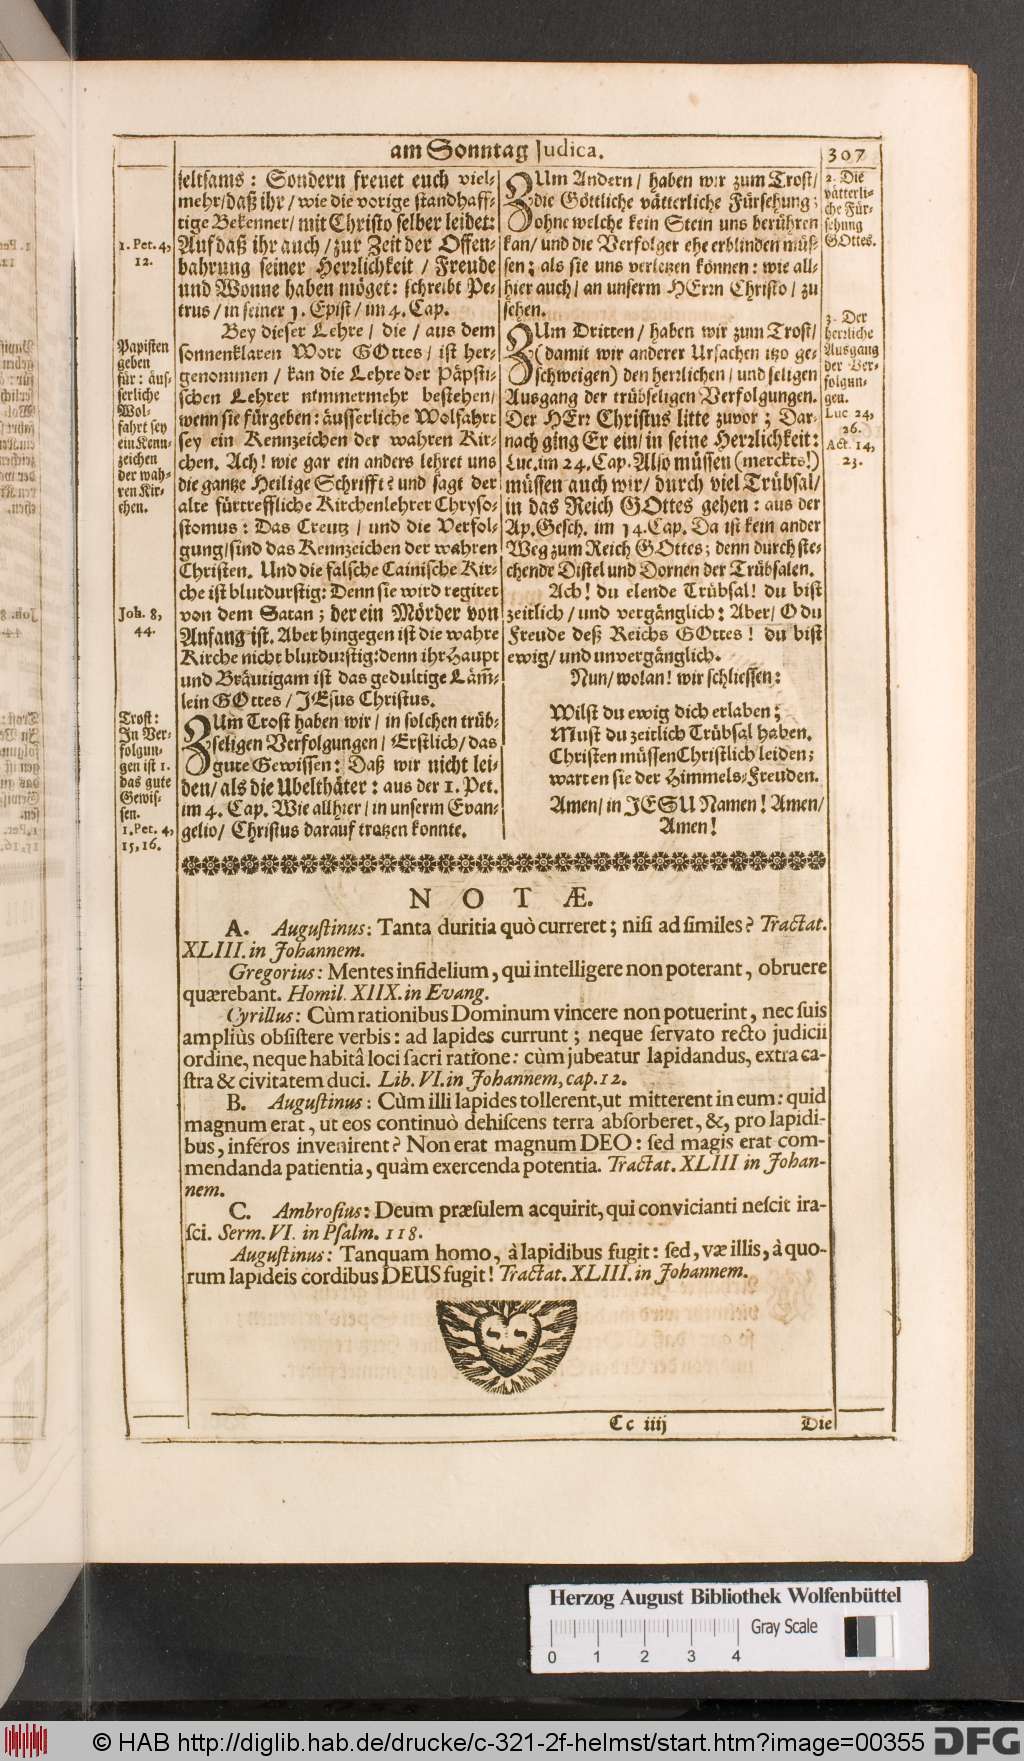 am Sonntag Judica.
307
seltsams: Sondern freuet euch viel-
mehr/daß ihr/wie die vorige standhaff-
tige Bekenner/ mit Christo selber leidet:
Auf daß ihr auch/zur Zeit der Offen-
bahrung seiner Herrlichkeit / Freude
und Wonne haben möget: schreibt Pe-
trus/in seiner 1. Epist/im 4. Cap.
1. Pet. 4,
12.
Bey dieser Lehre/ die/ aus dem
sonnenklaren Wort GOttes/ ist her-
genommen / kan die Lehre der Päpsti-
schen Lehrer nimmermehr bestehen/
wenn sie fürgeben: äusserliche Wolfahrt
sey ein Kennzeichen der wahren Kir-
chen. Ach! wie gar ein anders lehret uns
die gantze Heilige Schrifft? und sagt der
alte fürtreffliche Kirchenlehrer Chryso-
stomus: Das Creutz / und die Verfol-
gung/sind das Kennzeichen der wahren
Christen. Und die falsche Cainische Kir-
che ist blutdurstig: Denn sie wird regiret
von dem Satan; der ein Mörder von
Anfang ist. Aber hingegen ist die wahre
Kirche nicht blutdurstig: denn ihr Haupt
und Bräutigam ist das gedultige Läm̃-
lein GOttes/ JEsus Christus.
Papisten
geben
für: äus-
serliche
Wol-
fahrt sey
ein Kenn-
zeichen
der wah-
ren Kir-
chen.
Joh. 8,
44.
ZUm Trost haben wir/ in solchen trüb-
seligen Verfolgungen/ Erstlich/das
gute Gewissen: Daß wir nicht lei-
den/ als die Ubelthäter: aus der 1. Pet.
im 4. Cap. Wie allhier/in unserm Evan-
gelio/ Christus darauf trotzen konnte.
Trost:
In Ver-
folgun-
gen ist 1.
das gute
Gewis-
sen.
1. Pet. 4,
15, 16.
ZUm Andern/ haben wir zum Trost/
die Göttliche vätterliche Fürsehung;
ohne welche kein Stein uns berühren
kan/ und die Verfolger ehe erblinden müs-
sen; als sie uns verletzen können: wie all-
hier auch/ an unserm HErrn Christo/ zu
sehen.
2. Die
vätterli-
che Für-
sehung
GOttes.
ZUm Dritten/ haben wir zum Trost/
(damit wir anderer Ursachen itzo ge-
schweigen) den herrlichen/ und seligen
Ausgang der trübseligen Verfolgungen.
Der HErr Christus litte zuvor; Dar-
nach ging Er ein/ in seine Herrlichkeit:
Luc. im 24. Cap. Also müssen (merckts!)
müssen auch wir/ durch viel Trübsal/
in das Reich GOttes gehen: aus der
Ap. Gesch. im 14. Cap. Da ist kein ander
Weg zum Reich GOttes; denn durch ste-
chende Distel und Dornen der Trübsalen.
3. Der
herrliche
Ausgang
der Ver-
folgun-
gen.
Luc 24,
26.
Act. 14,
23.
Ach! du elende Trübsal! du bist
zeitlich/ und vergänglich: Aber/ O du
Freude deß Reichs GOttes! du bist
ewig/ und unvergänglich.
Nun/ wolan! wir schliessen:
Wilst du ewig dich erlaben;
Must du zeitlich Trübsal haben.
Christen müssen Christlich leiden;
warten sie der Himmels-Freuden.
Amen/ in JESU Namen! Amen/
Amen!
NOTÆ.
A. Augustinus: Tanta duritia quò curreret; nisi ad similes? Tractat.
XLIII. in Johannem.
Gregorius: Mentes infidelium, qui intelligere non poterant, obruere
quærebant. Homil. XIIX. in Evang.
Cyrillus: Cùm rationibus Dominum vincere non potuerint, nec suis
ampliùs obsistere verbis: ad lapides currunt; neque servato recto judicii
ordine, neque habitâ loci sacri ratione: cùm jubeatur lapidandus, extra ca-
stra & civitatem duci. Lib. VI. in Johannem, cap. 12.
B. Augustinus: Cùm illi lapides tollerent, ut mitterent in eum: quid
magnum erat, ut eos continuò dehiscens terra absorberet, &, pro lapidi-
bus, inferos invenirent? Non erat magnum DEO: sed magis erat com-
mendanda patientia, quàm exercenda potentia. Tractat. XLIII in Johan-
nem.
C. Ambrosius: Deum præsulem acquirit, qui convicianti nescit ira-
sci. Serm. VI. in Psalm. 118.
Augustinus: Tanquam homo, à lapidibus fugit: sed, væ illis, à quo-
rum lapideis cordibus DEUS fugit! Tractat. XLIII. in Johannem.
Cc iiij
Die
Herzog August Bibliothek Wolfenbüttel
Gray Scale
0 1 2 3 4
© HAB http://diglib.hab.de/drucke/c-321-2f-helmst/start.htm?image=00355
DFG